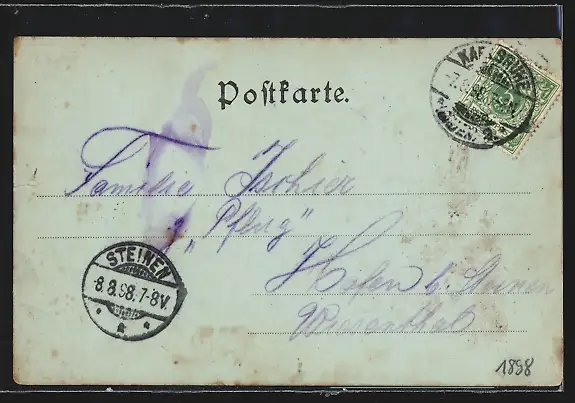 Postkarte.
KARLSRUHE
Familie Tschier
z. „Pflug"
STEINEN
8.8.98.7-8V.
Höfen b. Steinen
Wiesenthal
1898